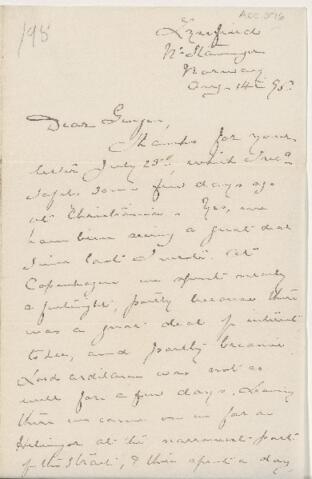 198
ACC 3/16
Nr Stavanger
Norway
Aug. 14th 95.
Dear Ganger,
Thanks for your
letter July 23rd, which I recd
safely some few days ago
at Christiania. Yes, we
have been seeing a great deal
since last I wrote. At
Copenhagen we spent nearly
a fortnight, partly because there
was a great deal of interest
to see, and partly because
Lord Ardilaun was not so
well for a few days. Leaving
there we came on as far as
Helsingor at the narrowest part
of the Strait, & there spent a day,